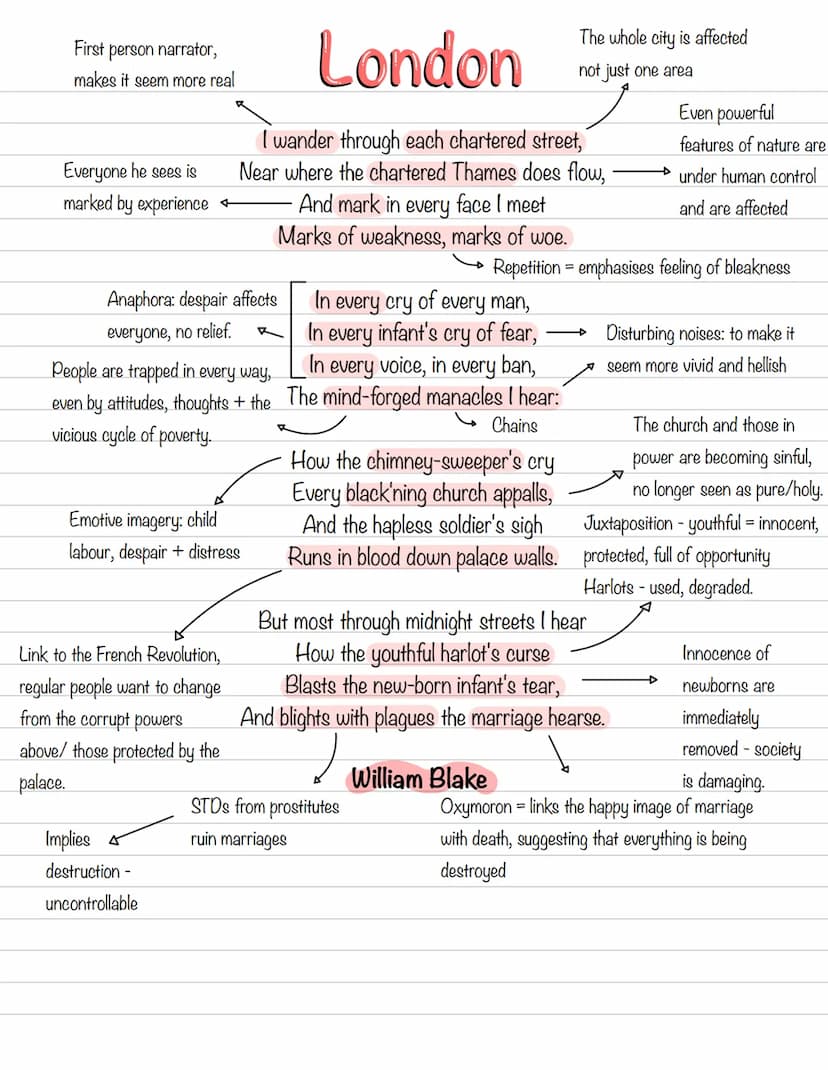 London
First person narrator,
makes it seem more real
The whole city is affected
not just one area
I wander through each chartered street,
Even powerful
features of nature are
under human control
and are affected
Near where the chartered Thames does flow,
Everyone he sees is
marked by experience
And mark in every face I meet
Marks of weakness, marks of woe.
Repetition = emphasises feeling of bleakness
Anaphora: despair affects
everyone, no relief.
In every cry of every man,
In every infant's cry of fear,
Disturbing noises: to make it
seem more vivid and hellish
In every voice, in every ban,
The mind-forged manacles I hear:
People are trapped in every way,
even by attitudes, thoughts + the
vicious cycle of poverty.
Chains
How the chimney-sweeper's cry
The church and those in
power are becoming sinful,
no longer seen as pure/holy.
Every black'ning church appalls,
Emotive imagery: child
labour, despair + distress
And the hapless soldier's sigh
Runs in blood down palace walls.
Juxtaposition - youthful = innocent,
protected, full of opportunity
Harlots - used, degraded.
But most through midnight streets I hear
How the youthful harlot's curse
Link to the French Revolution,
regular people want to change
from the corrupt powers
above/ those protected by the
palace.
Blasts the new-born infant's tear,
Innocence of
newborns are
immediately
removed - society
is damaging.
And blights with plagues the marriage hearse.
William Blake
STDs from prostitutes
ruin marriages
Oxymoron = links the happy image of marriage
with death, suggesting that everything is being
destroyed
Implies
destruction -
uncontrollable